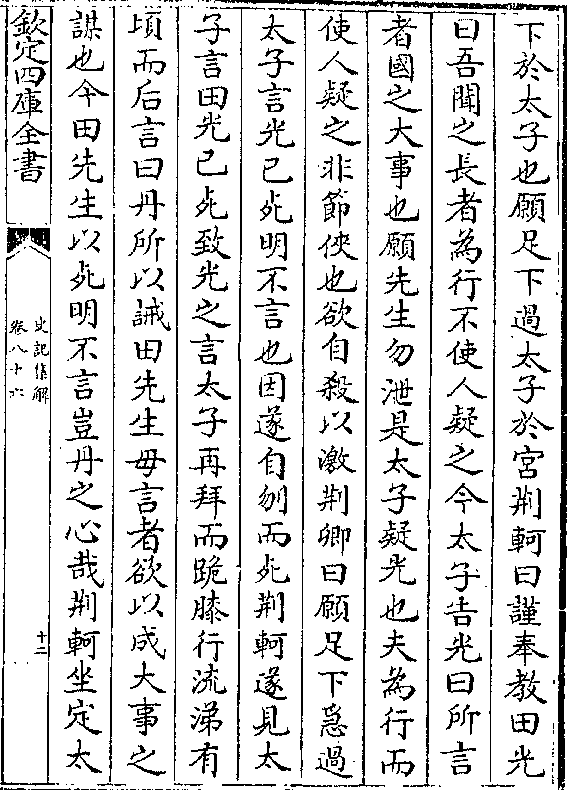 下於太子也願足下過太子於宮荆軻曰謹奉教田光
曰吾聞之長者為行不使人疑之今太子告光曰所言
者國之大事也願先生勿泄是太子疑光也夫為行而
使人疑之非節俠也欲自殺以激荆卿曰願足下急過
太子言光已死明不言也因遂自刎而死荆軻遂見太
子言田光已死致光之言太子再拜而跪膝行流涕有
頃而后言曰丹所以誡田先生毋言者欲以成大事之
謀也今田先生以死明不言豈丹之心哉荆軻坐定太
欽定四庫全書
史記集解
卷八十六
十二